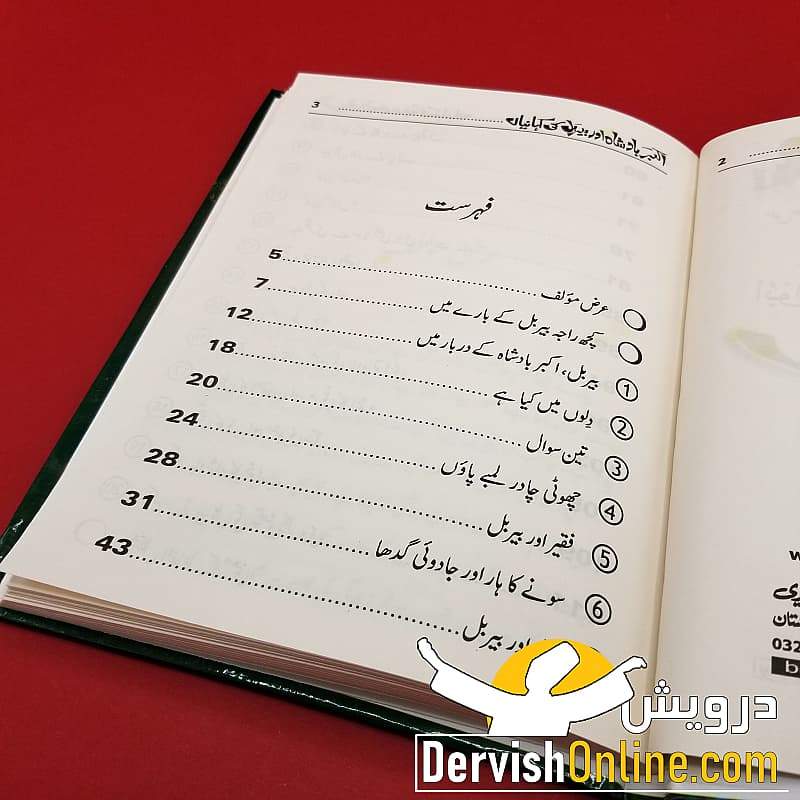 اکبر بادشاہ اور بیربل کی کہانیاں ........................ 3
فہرست
عرض مؤلف ........................ 5
کچھ راجہ بیربل کے بارے میں ........................ 7
① بیربل، اکبر بادشاہ کے دربار میں ........................ 12
② دِلوں میں کیا ہے ........................ 18
③ تین سوال ........................ 20
④ چھوٹی چادر لمبے پاؤں ........................ 24
⑤ فقیر اور بیربل ........................ 28
⑥ سونے کا ہار اور جادوئی گدھا ........................ 31
اور بیربل ........................ 43
2
032
درویش
DervishOnline.com